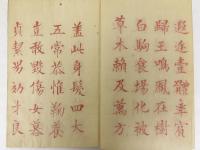 遐迩壹體率賓
歸王鳴鳳在樹
白駒食場化被
草木賴及萬方
蓋此身髮四大
五常恭惟鞠養
豈敢毀傷女慕
貞絜男効才良